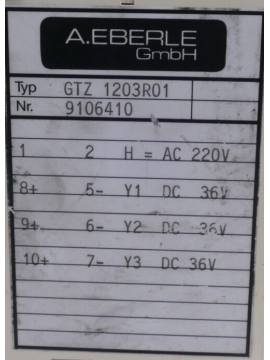 A.EBERLE
GmbH
Typ GTZ 1203R01
Nr. 9106410
1 2 H = AC 220V
8+ 5- Y1 DC 36V
9+ 6- Y2 DC 36V
10+ 7- Y3 DC 36V